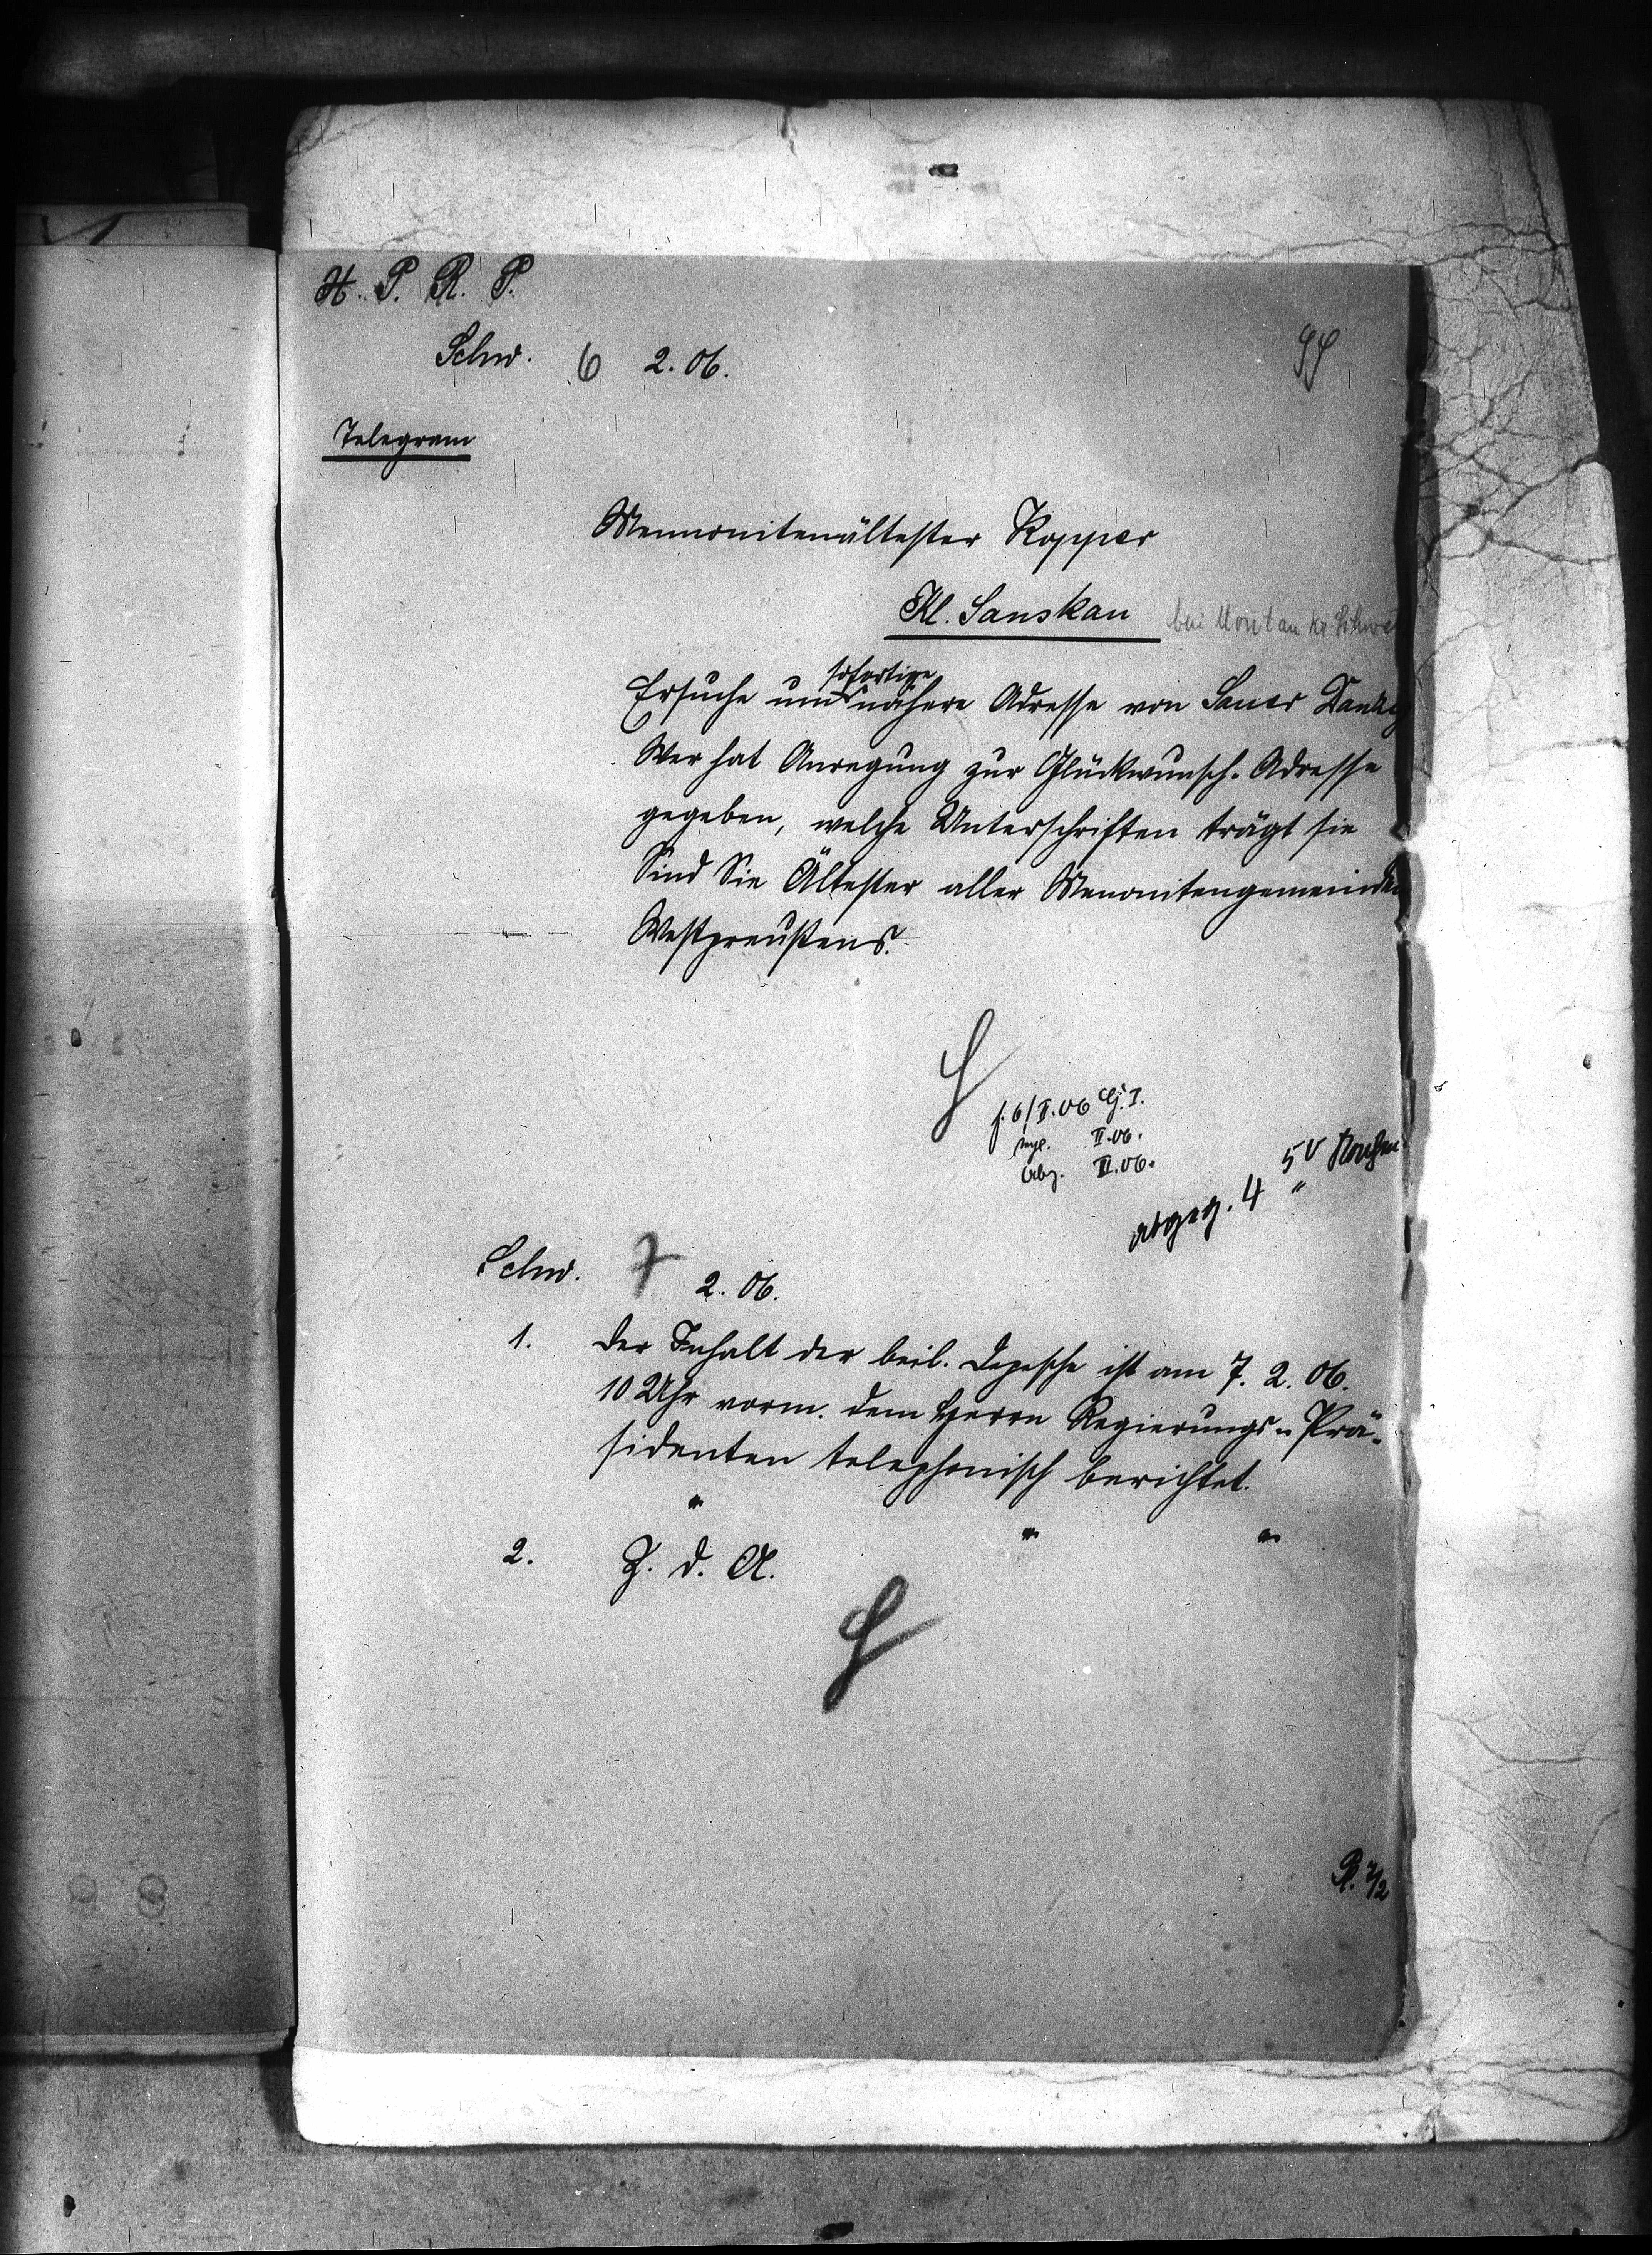 H. P. R. P.
Schw. 6 2. 06.
Telegram
Mennonitenältester Kopper
Kl. Sanskau bei Montau Kr Schwetz
sofortige
Ersuche um nähere Adresse von Sauer Danzig
Wer hat Anregung zur Glückwunsch-Adresse
gegeben, welche Unterschriften trägt sie
Sind Sie Ältester aller Menonitengemeinden
Westpreußens.
f. 6/II. 06
II. 06.
abg. II. 06.
5 V
abgeg. 4 "
Schw. 7 2. 06.
1. Der Inhalt der beil. Depesche ist am 7. 2. 06.
10 Uhr vorm. dem Herrn Regierungs-Prä-
sidenten telephonisch berichtet.
2. Z. d. A.
R. 7/2